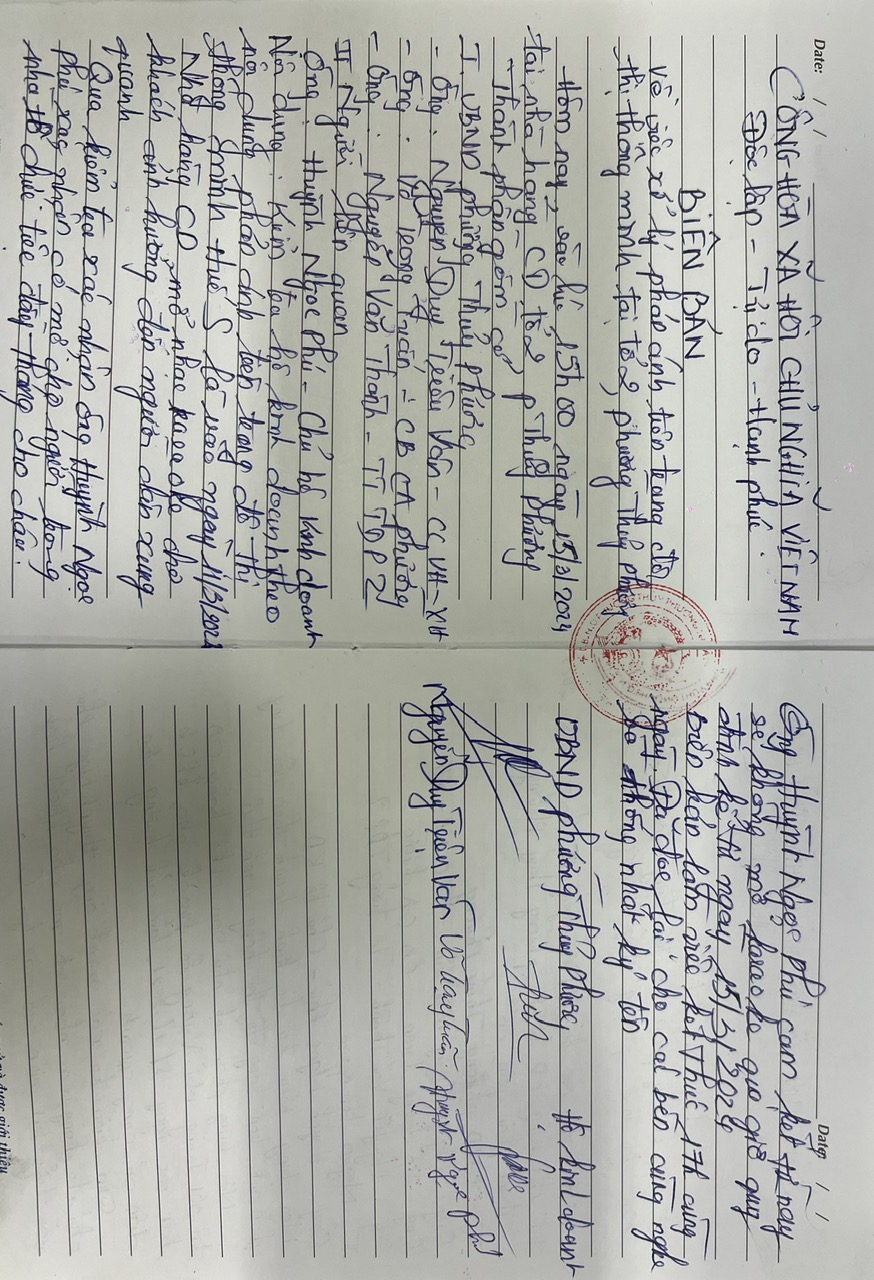 Date: / /
CÔNG HÒA XÃ HỘI CHỦ NGHĨA VIỆT NAM
Độc lập - Tự do - Hạnh phúc.
BIÊN BẢN
Về việc xử lý phản ánh trên trang đô
thị thông minh tại tổ 2, phường Thủy phương
Hôm nay, vào lúc 15h00 ngày 15/3/2024
tại nhà hàng CD tổ 2 p Thủy Phương
Thành phần gồm có
I. UBND phường Thủy phương
- Ông. Nguyễn Duy Tiến Văn - CC VH-XH
- Ông. Võ Trọng Tuấn - CB CA phường
- Ông. Nguyễn Văn Thành - TT TDP 2
II Người liên quan
Ông. Huỳnh Ngọc Phú - Chủ hộ kinh doanh
Nội dung. Kiểm tra hộ kinh doanh theo
nội dung phản ánh trên trang đô thị
thông minh Huế S là vào ngày 11/3/2024
Nhà hàng CD mở nhạc karaoke cho
khách ảnh hưởng đến người dân xung
quanh
Qua kiểm tra xác nhận ông Huỳnh Ngọc
Phú xác nhận có mở do người trong
nhà tổ chức tiệc đầy tháng cho cháu.
Date: / /
Ông Huỳnh Ngọc Phú cam kết từ nay
sẽ không mở karaoke quá giờ quy
định kể từ ngày 15/3/2024
Biên bản làm việc kết thúc 17h cùng
ngày. Đã đọc lại cho các bên cùng nghe
và thống nhất ký tên
UBND phường Thủy Phương Hộ kinh doanh
Nguyễn Duy Tiến Văn Võ Trọng Tuấn Huỳnh Ngọc Phú